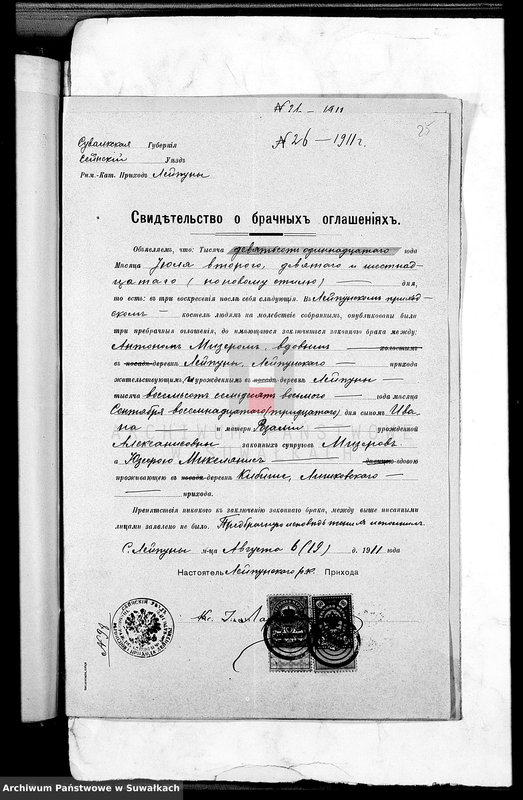 № 21 – 1911
№ 26 – 1911 г.
25
Сувалкская Губернія
Сейнскій Уѣздъ
Рим.-Кат. Приходъ Лейпуны
Свидѣтельство о брачныхъ оглашеніяхъ.
Объявляемъ, что: Тысяча девятьсотъ одиннадцатаго года
Мѣсяца Іюля второго, девятаго и шестнад-
цатаго (по новому стилю) дня,
то есть: въ три воскресенія послѣ себя слѣдующія. Въ Лейпунскомъ приход-
скомъ костелѣ людямъ на молебствіе собраннымъ, опубликованы были
три предбрачныя оглашенія, до имѣющагося заключиться законнаго брака между:
Антономъ Мицеромъ, вдовымъ холостымъ
въ посадѣ-деревнѣ Лейпуны, Лейпунскаго прихода
жительствующимъ, урожденнымъ въ посадѣ-деревнѣ Лейпуны
тысяча восемьсотъ семьдесятъ восьмого года мѣсяца
Сентября восемнадцатаго (тридцатаго) дня сыномъ Ива-
на и матери Розаліи урожденной
Александровичъ законныхъ супруговъ Мицеровъ
а Юзефою Микелянисъ вдовою
проживающею въ посадѣ-деревнѣ Кибыши, Лишковскаго
прихода.
Препятствія никакого къ заключенію законнаго брака, между выше писанными
лицами заявлено не было. Предбрачную исповѣдь женихъ исполнилъ.
С. Лейпуны м-ца Августа 6 (19) д. 1911 года
Настоятель Лейпунскаго р.к. Прихода
Кс.
№ 98
Archiwum Państwowe w Suwałkach